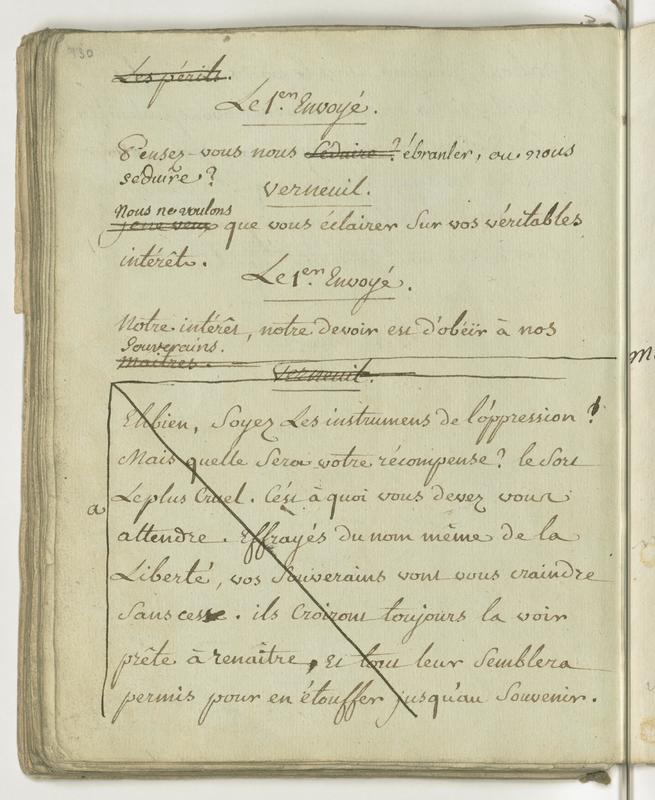 730
Les périls.
Le 1.er Envoyé.
Pensez-vous nous séduire? ébranler, ou nous
séduire?
Verneuil.
Nous ne voulons
je ne veux que vous éclairer sur vos véritables
intérêts.
Le 1.er Envoyé.
Notre intérêt, notre devoir est d'obéir à nos
Souverains.
Maitres.
Verneuil.
Ehbien, Soyez Les instrumens de l'oppression!
Mais quelle Sera votre récompense? le Sort
Le plus Cruel. C'est à quoi vous devez vous
a
attendre. Effrayés du nom même de la
Liberté, vos Souverains vont vous craindre
Sans cesse. ils Croiront toujours la voir
prête à renaître, et tout leur Semblera
permis pour en étouffer jusqu'au Souvenir.